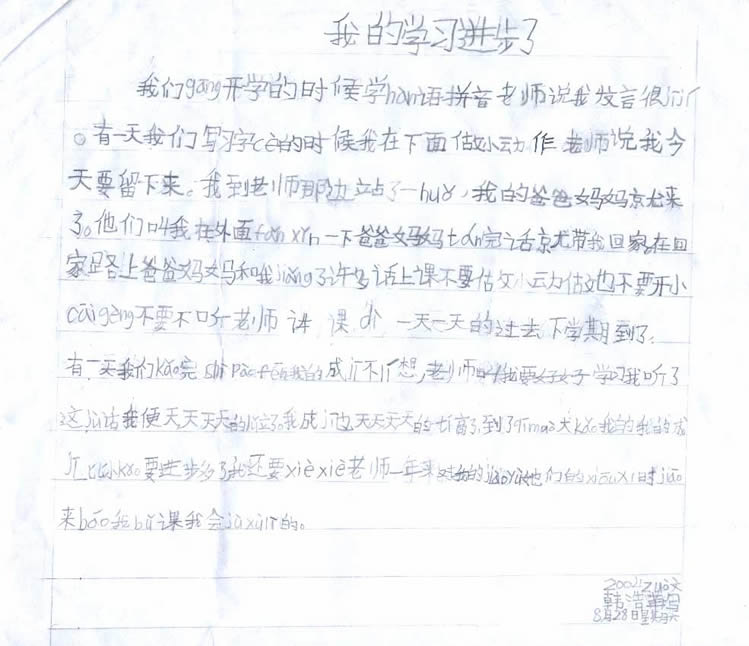 我的学习进步了
我们gāng开学的时候学hàn语拼音老师说我发言很jījí
。有一天我们写习字cè的时候我在下面做小动作老师说我今
天要留下来。我到老师那边站了一huǒ，我的爸爸妈妈就来
了。他们叫我在外面fǎn xǐn一下爸爸妈妈tán完话就带我回家。在回
家路上爸爸妈妈和我jiǎng了许多话上课不要做小动作也不要开小
cāi gèng不要不听老师讲课 一天一天的过去下学期到了。
有一天我们kǎo完shì 我的成jì不lǐ想,老师叫我要好好学习我听了
这jù话我便天天天天的 了。我成jì也天天天天的tí高了。到了qīmò大kǎo我的我的成
jì比小kǎo要进步多了我还要xièxiè老师一年来对我的jiàoyù他们的xiūxi时jiān
来bāo我bǔ课我会jìxù 的。
2004zuò文
韩浩 写
8月28日星期六